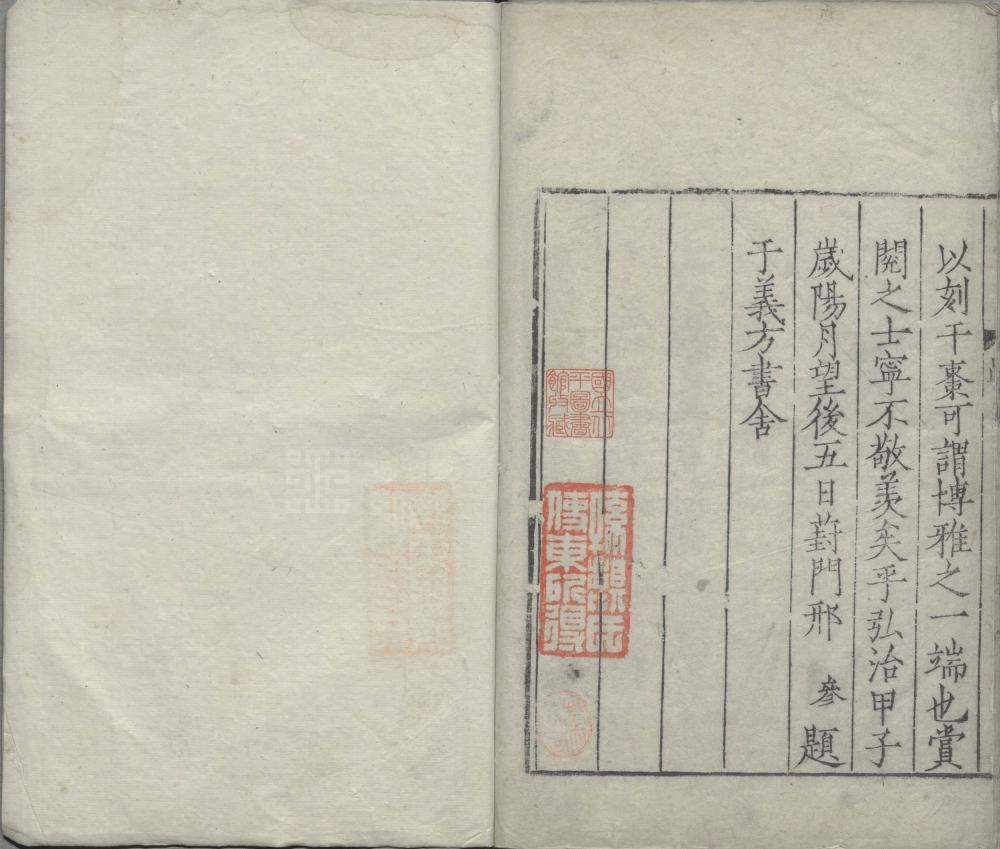 以刻于棗可謂博雅之一端也賞
閱之士寧不敬羨矣乎弘治甲子
歲陽月望後五日葑門邢 參題
于義方書舍
國立北
平圖書
館收藏